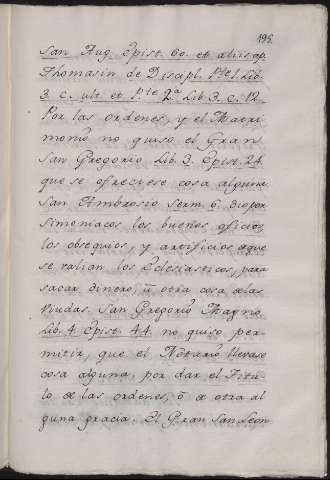 195.
San Aug. Epist. 60. et aliis ap.
Thomasin de Discipl. Pte. 1. Lib.
3. c. ult. et Pte. 2ª. Lib. 3. c. 12.
Por las ordenes, y el Matri-
monio no quiso el Gran
San Gregorio Lib. 3. Epist. 24.
que se ofreciese cosa alguna.
San Ambrosio Serm. 6. dio por
simoniacos los buenos oficios,
los obsequios, y artificios de que
se valian los Eclesiasticos, para
sacar dinero, ū otra cosa de las
Viudas. San Gregorio Magno
Lib. 4. Epist. 44. no quiso per-
mitir, que el Notario llevase
cosa alguna, por dar el Titu-
lo de las ordenes, ō de otra al
guna gracia. El Gran San Leon